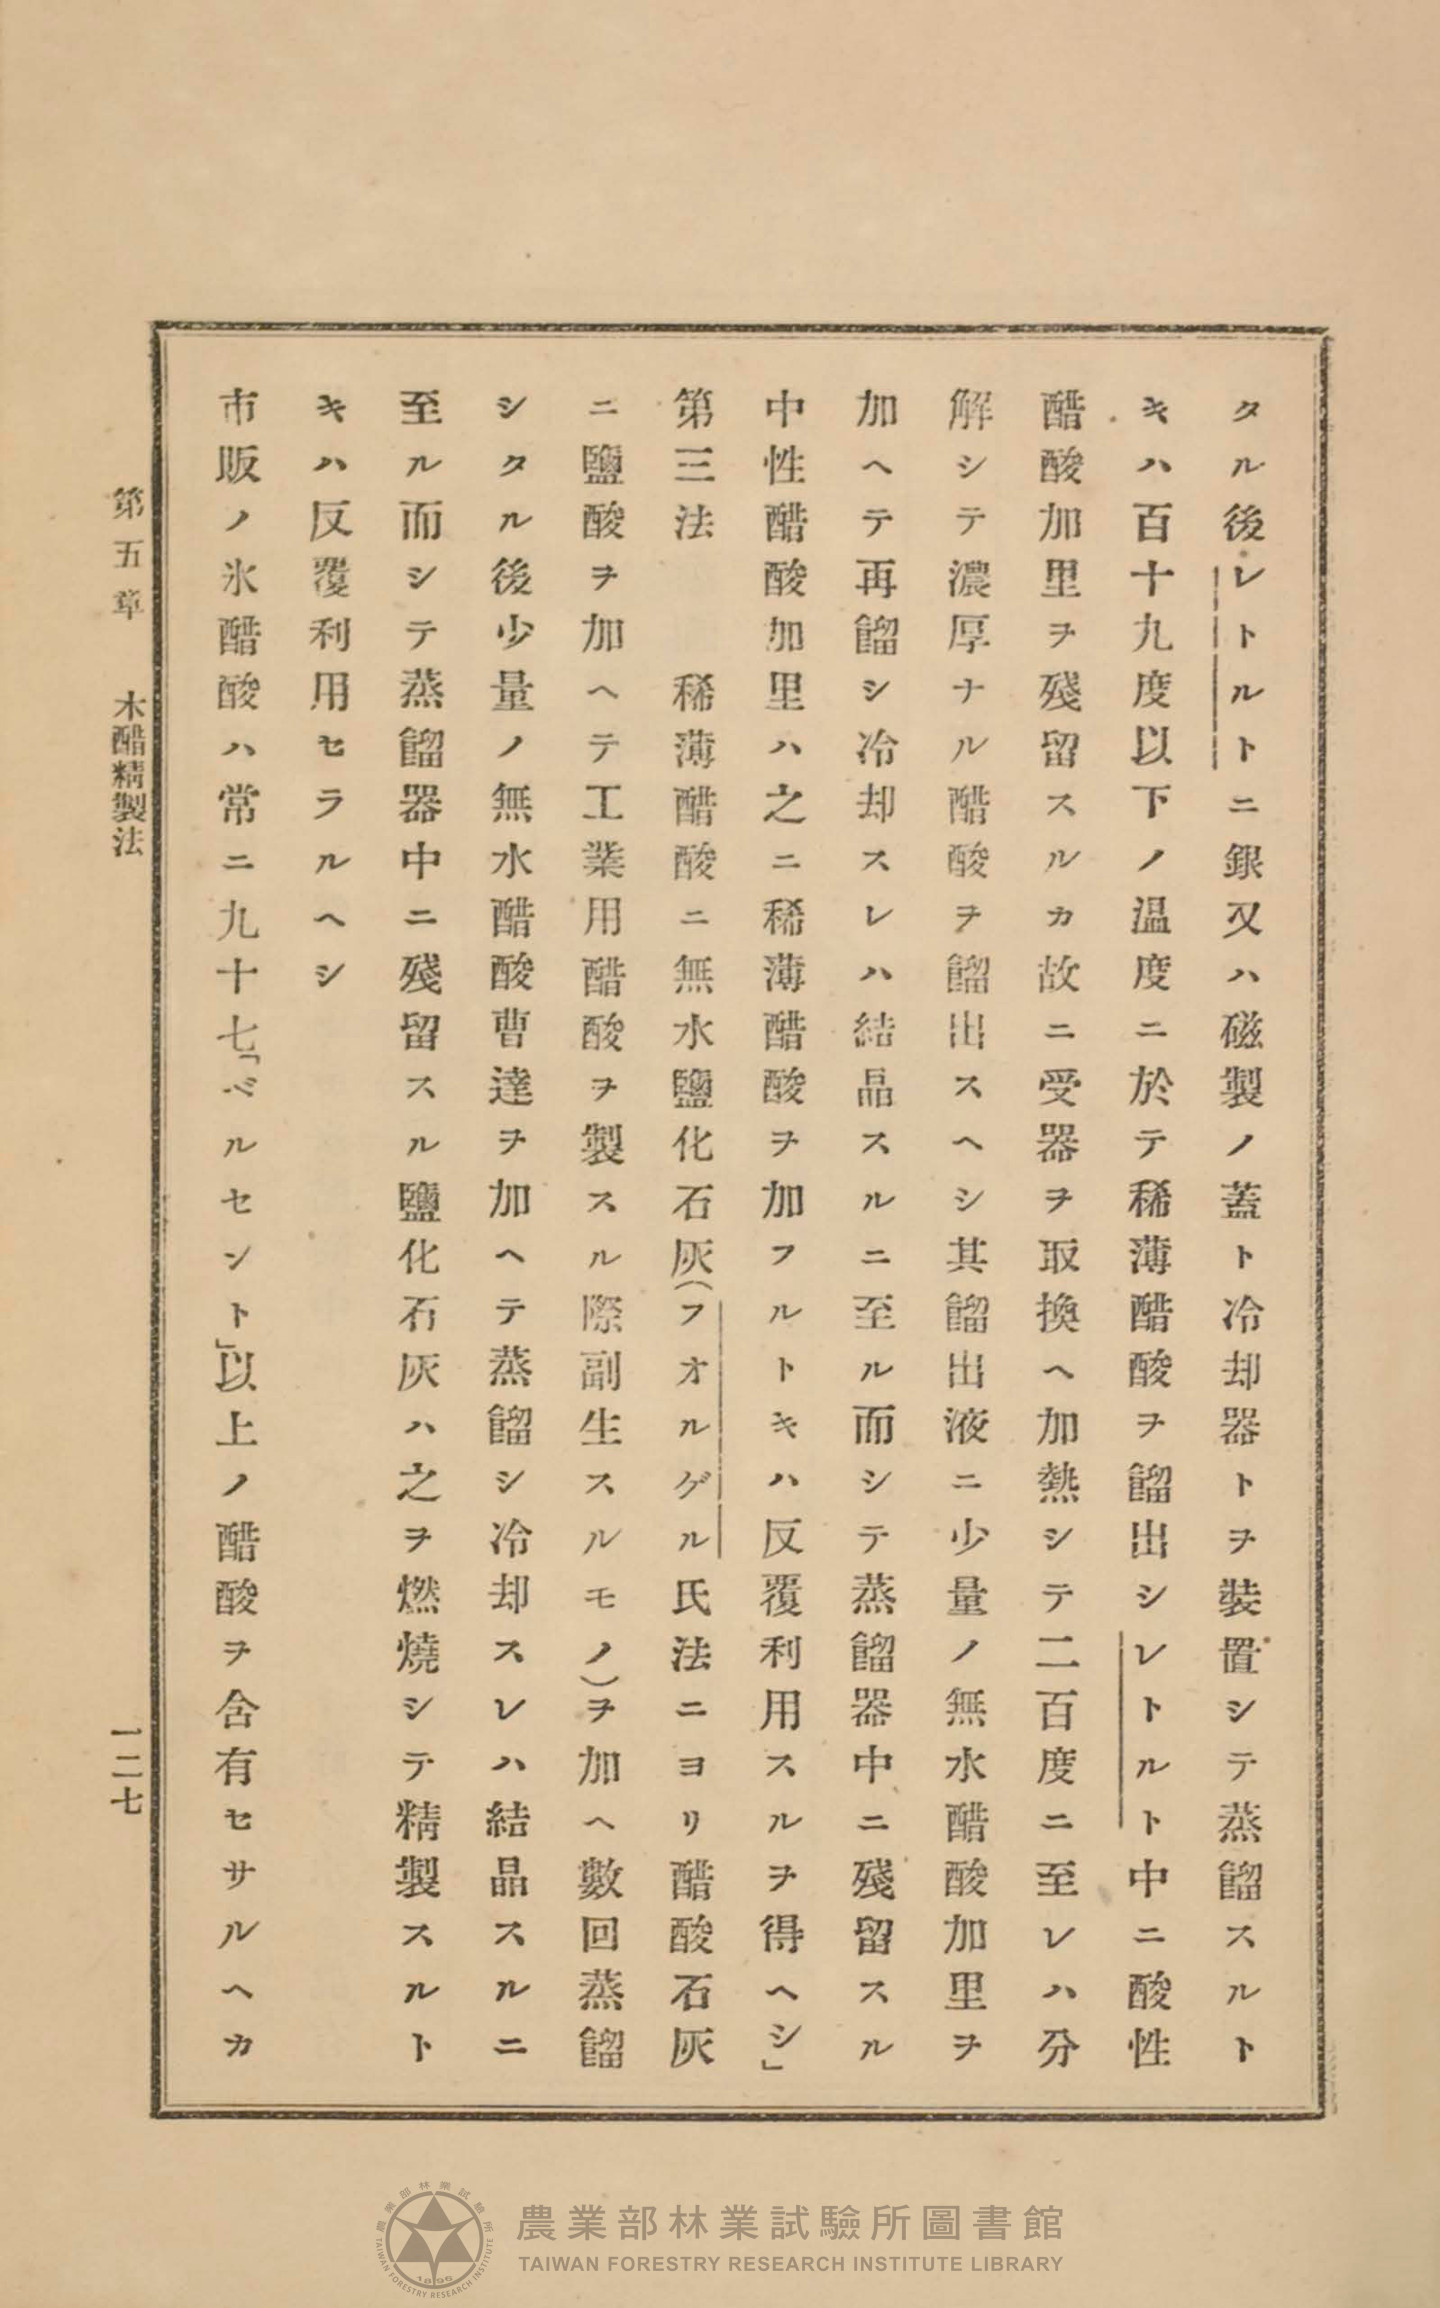 タル後レトルトニ銀又ハ磁製ノ蓋ト冷却器トヲ裝置シテ蒸餾スルト
キハ百十九度以下ノ温度ニ於テ稀薄醋酸ヲ餾出シレトルト中ニ酸性
醋酸加里ヲ殘留スルカ故ニ受器ヲ取換ヘ加熱シテ二百度ニ至レハ分
解シテ濃厚ナル醋酸ヲ餾出スヘシ其餾出液ニ少量ノ無水醋酸加里ヲ
加ヘテ再餾シ冷却スレハ結晶スルニ至ル而シテ蒸餾器中ニ殘留スル
中性醋酸加里ハ之ニ稀薄醋酸ヲ加フルトキハ反覆利用スルヲ得ヘシ」
第三法　稀薄醋酸ニ無水鹽化石灰(フオルゲル氏法ニヨリ醋酸石灰
ニ鹽酸ヲ加ヘテ工業用醋酸ヲ製スル際副生スルモノ)ヲ加ヘ數回蒸餾
シタル後少量ノ無水醋酸曹達ヲ加ヘテ蒸餾シ冷却スレハ結晶スルニ
至ル而シテ蒸餾器中ニ殘留スル鹽化石灰ハ之ヲ燃燒シテ精製スルト
キハ反覆利用セラルヘシ
市販ノ氷醋酸ハ常ニ九十七「ペルセント」以上ノ醋酸ヲ含有セサルヘカ
第五章　木醋精製法
一二七
農業部林業試驗所圖書館
TAIWAN FORESTRY RESEARCH INSTITUTE LIBRARY
農業部林業試驗所
TAIWAN FORESTRY RESEARCH INSTITUTE
1896